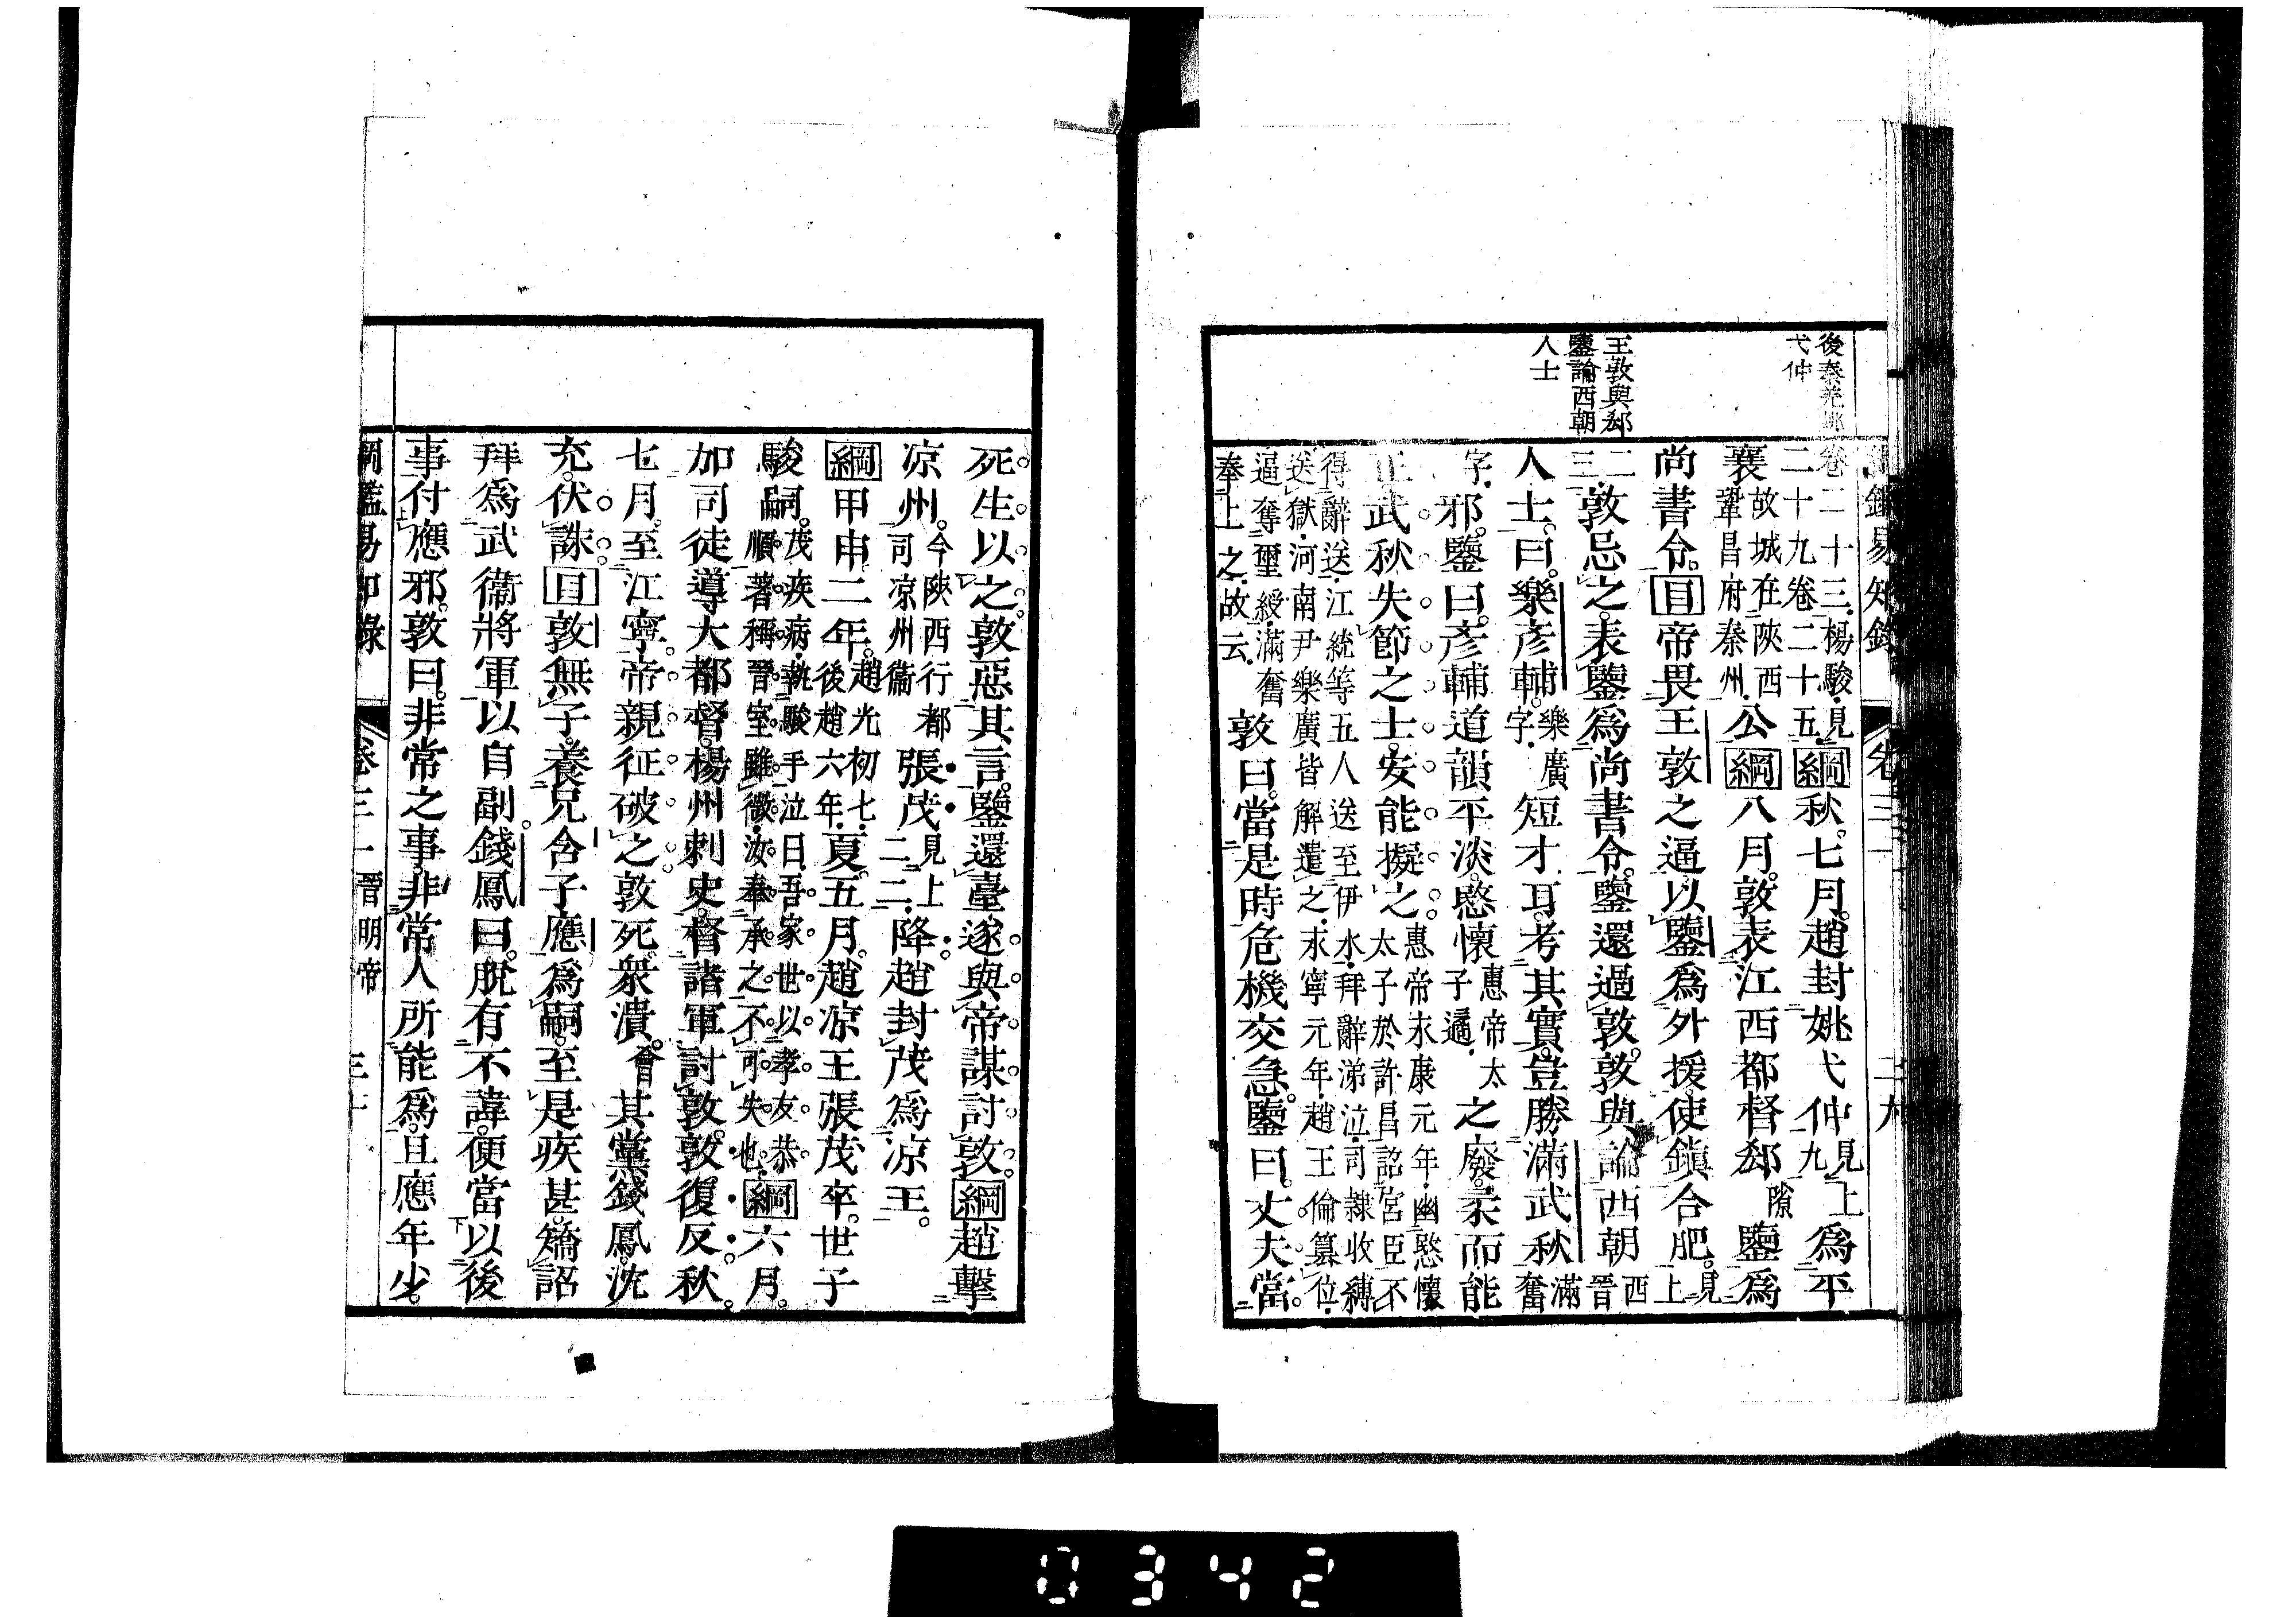 後秦羌姚
弋仲
王敦與郄
鑒論西朝
人士
鑑易知錄 卷三一 二九
卷二十三.楊駿.見二十九卷二十五.綱秋七月。趙封姚弋仲見上九為平
襄故城在陝西鞏昌府秦州.公綱八月。敦表江西都督郄隙鑒為
尚書令。目帝畏王敦之逼。以鑒為外援。使鎮合肥。見上
二三.敦忌之。表鑒為尚書令。鑒還過敦。敦與論西朝西晉
人士。曰。樂彥輔。樂廣字.短才耳。考其實。豈勝滿武秋滿奮
字.邪。鑒曰。彥輔道韻平淡。愍懷惠帝太子遹.之廢。柔而能
正。武秋失節之士。安能擬之。惠帝永康元年.幽愍懷太子於許昌.詔宮臣不
得辭送.江統等五人送至伊水.拜辭涕泣.司隸收縛送獄.河南尹樂廣皆解遣之.永寧元年.趙王倫篡位.
逼奪璽綬.滿奮奉上之.故云.敦曰。當是時危機交急。鑒曰。丈夫當
死生以之。敦惡其言。鑒還臺。遂與帝謀討敦。綱趙擊
涼州。今陝西行都司涼州衞張茂見上二二.降。趙封茂為涼王。
綱甲申二年。趙光初七.後趙六年.夏。五月。趙涼王張茂卒。世子
駿嗣。茂疾病.執駿手泣曰.吾家世以孝友恭順著稱.晉室雖微.汝奉承之.不可失也.綱六月。
加司徒導大都督。楊州刺史。督諸軍討敦。敦復反。秋。
七月。至江寧。帝親征破之。敦死。眾潰。會其黨錢鳳。沈
充。伏誅。目敦無子。養兄含子應為嗣。至是疾甚。矯詔
拜為武衞將軍以自副。錢鳳曰。脫有不諱。便當以後
事付應邪。敦曰。非常之事。非常人所能為。且應年少。
綱鑑易知錄 卷三一 晉明帝 三十
0342